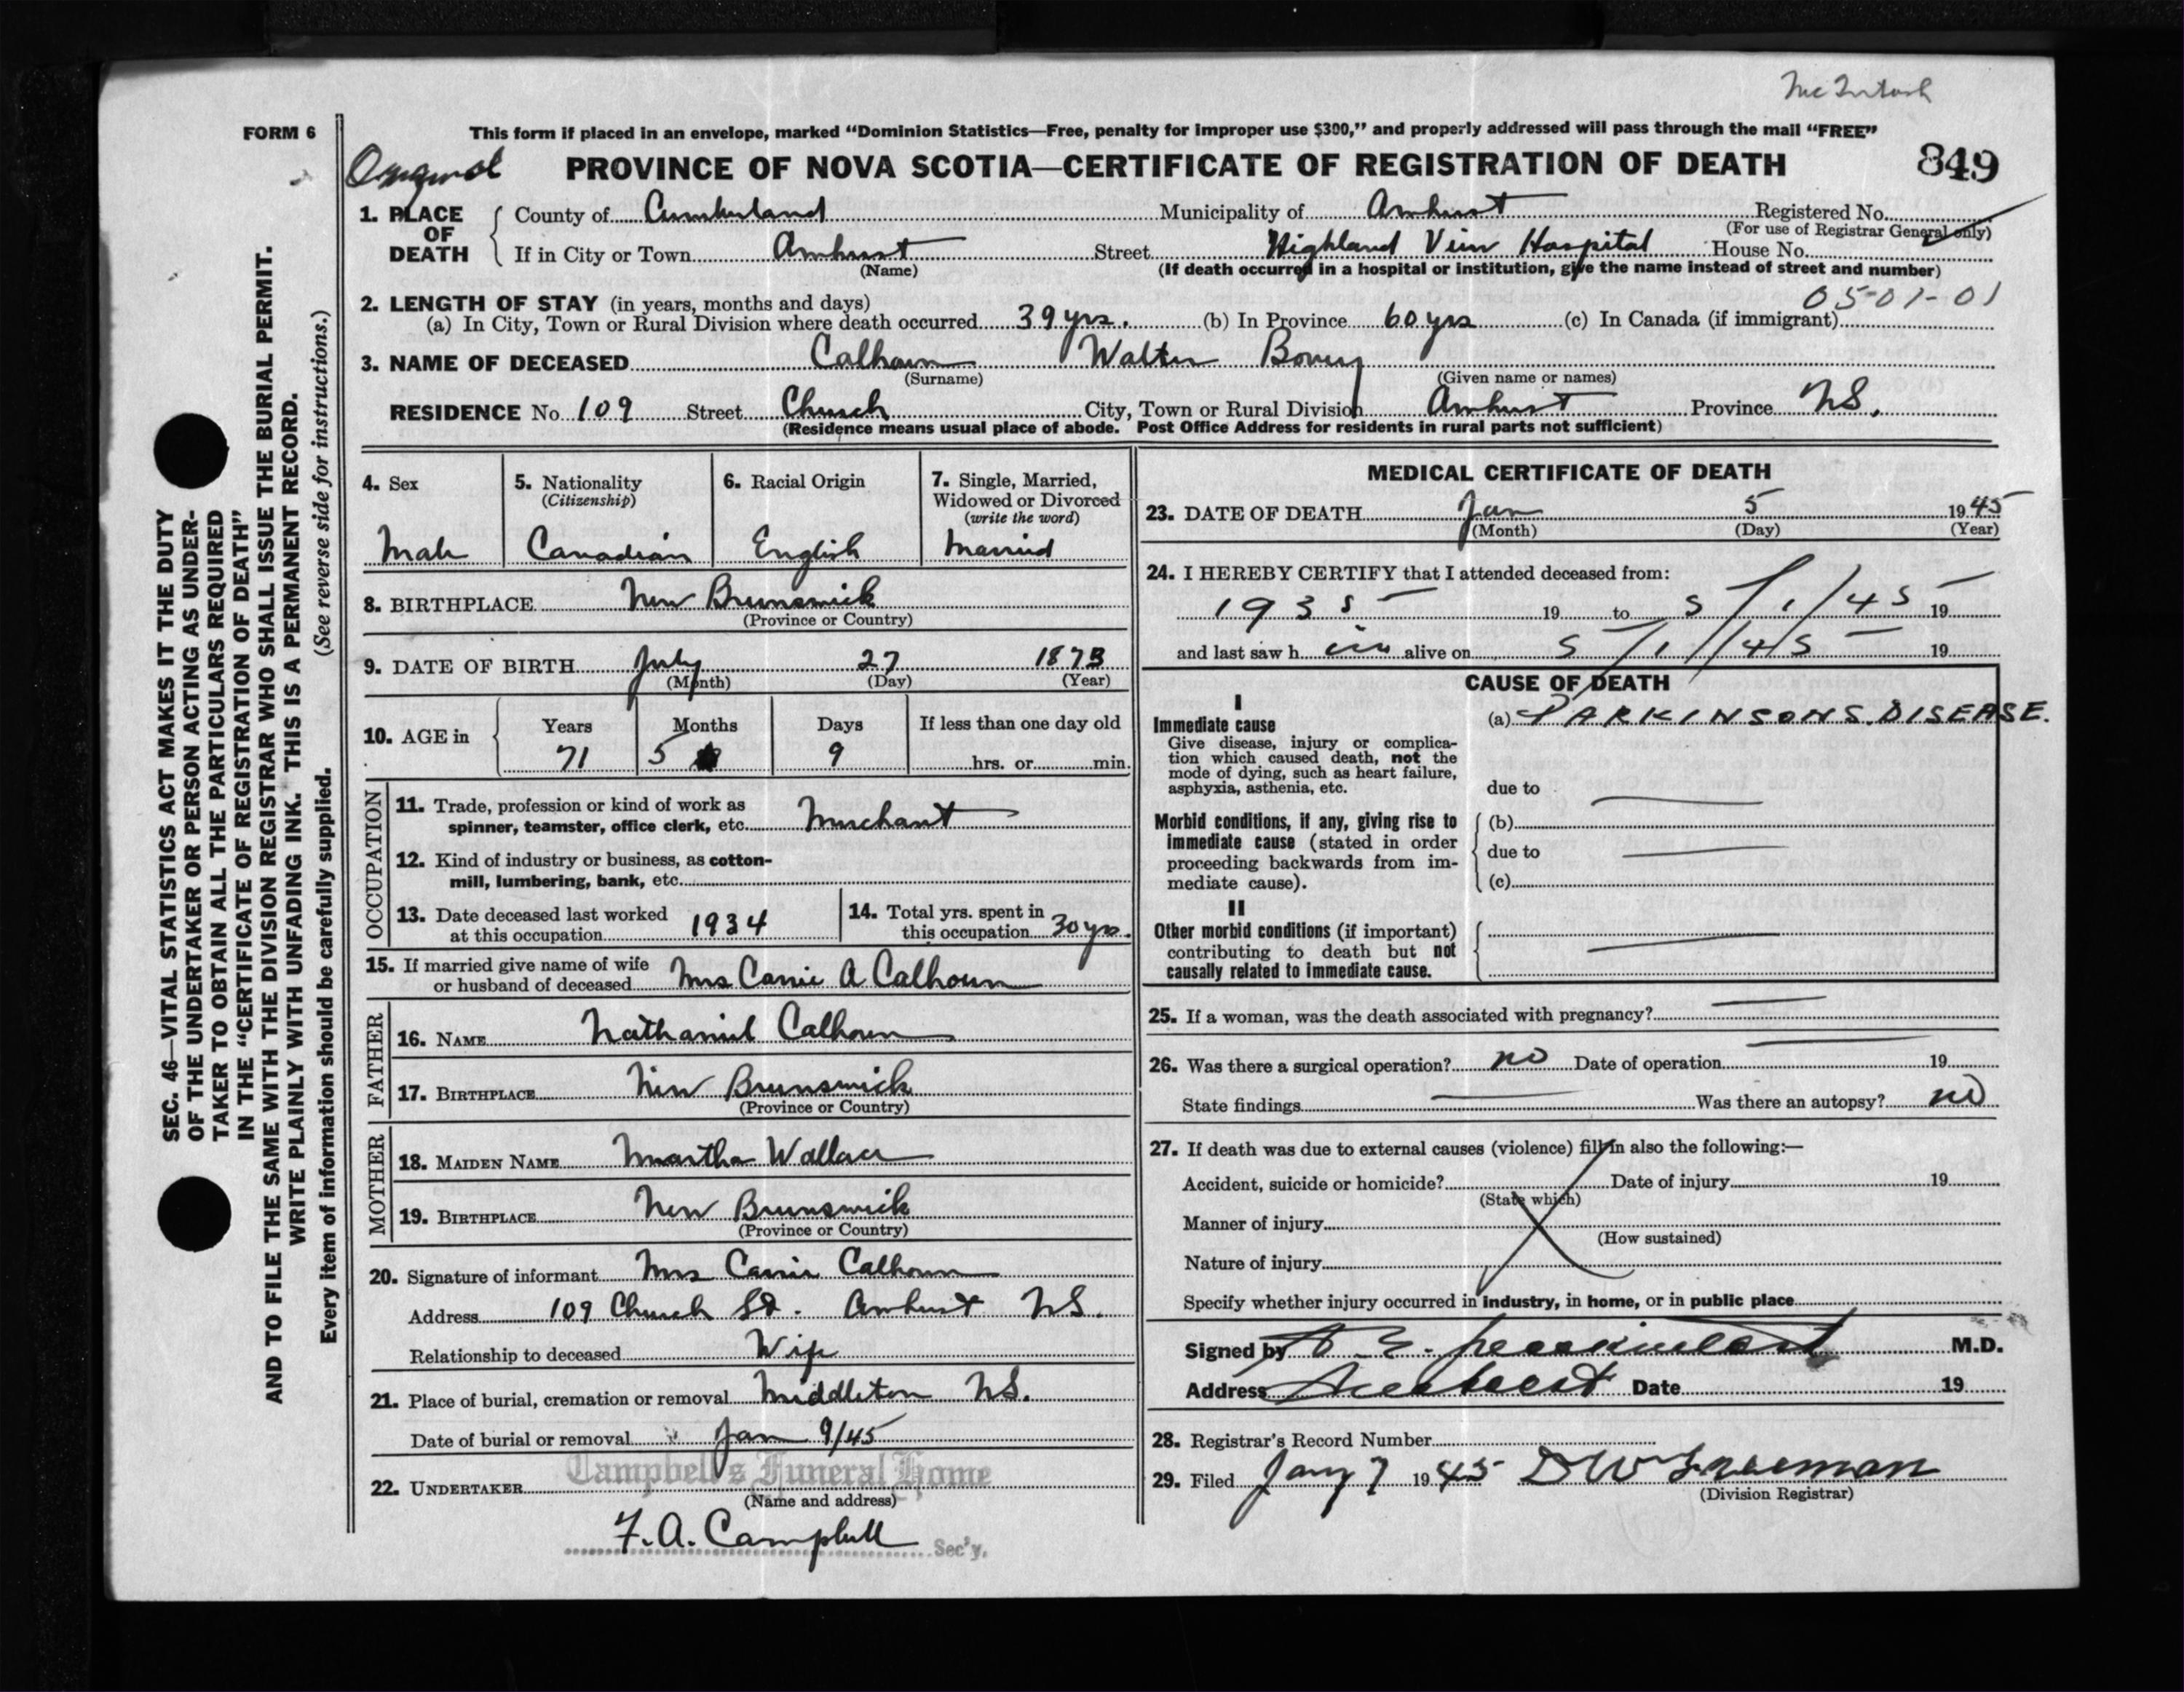 McIntosh
FORM 6
This form if placed in an envelope, marked "Dominion Statistics—Free, penalty for improper use $300," and properly addressed will pass through the mail "FREE"
Original
PROVINCE OF NOVA SCOTIA—CERTIFICATE OF REGISTRATION OF DEATH
849
1. PLACE OF DEATH
County of Cumberland Municipality of Amherst Registered No.
(For use of Registrar General only)
If in City or Town Amherst Street Highland View Hospital House No.
(Name) (If death occurred in a hospital or institution, give the name instead of street and number)
05-01-01
2. LENGTH OF STAY (in years, months and days)
(a) In City, Town or Rural Division where death occurred 39 yrs. (b) In Province 60 yrs (c) In Canada (if immigrant)
3. NAME OF DECEASED Calhoun Walter
(Surname) (Given name or names)
RESIDENCE No. 109 Street Church City, Town or Rural Division Amherst Province N.S.
(Residence means usual place of abode. Post Office Address for residents in rural parts not sufficient)
4. Sex
Male
5. Nationality
(Citizenship)
Canadian
6. Racial Origin
English
7. Single, Married,
Widowed or Divorced
(write the word)
Married
8. BIRTHPLACE New Brunswick
(Province or Country)
9. DATE OF BIRTH July 27 1873
(Month) (Day) (Year)
10. AGE in
Years Months Days If less than one day old
71 5 9 hrs. or min.
OCCUPATION
11. Trade, profession or kind of work as
spinner, teamster, office clerk, etc. Merchant
12. Kind of industry or business, as cotton-
mill, lumbering, bank, etc.
13. Date deceased last worked
at this occupation 1934
14. Total yrs. spent in
this occupation 30 yrs.
15. If married give name of wife
or husband of deceased Mrs Carrie A Calhoun
FATHER
16. NAME Nathaniel Calhoun
17. BIRTHPLACE New Brunswick
(Province or Country)
MOTHER
18. MAIDEN NAME Martha Wallace
19. BIRTHPLACE New Brunswick
(Province or Country)
20. Signature of informant Mrs Carrie Calhoun
Address 109 Church St. Amherst N.S.
Relationship to deceased Wife
21. Place of burial, cremation or removal Middleton N.S.
Date of burial or removal Jan 9/45
Campbell's Funeral Home
22. UNDERTAKER
(Name and address)
F. A. Campbell Sec'y.
MEDICAL CERTIFICATE OF DEATH
23. DATE OF DEATH Jan 5 1945
(Month) (Day) (Year)
24. I HEREBY CERTIFY that I attended deceased from:
1935 19 to 5/1/45 19
and last saw h im alive on 5/1/45 19
CAUSE OF DEATH
I
Immediate cause
Give disease, injury or complica-
tion which caused death, not the
mode of dying, such as heart failure,
asphyxia, asthenia, etc.
(a) PARKINSONS DISEASE.
due to
Morbid conditions, if any, giving rise to
immediate cause (stated in order
proceeding backwards from im-
mediate cause).
(b)
due to
(c)
II
Other morbid conditions (if important)
contributing to death but not
causally related to immediate cause.
25. If a woman, was the death associated with pregnancy?
26. Was there a surgical operation? no Date of operation 19
State findings Was there an autopsy? no
27. If death was due to external causes (violence) fill in also the following:—
Accident, suicide or homicide? Date of injury 19
(State which)
Manner of injury
(How sustained)
Nature of injury
Specify whether injury occurred in industry, in home, or in public place
Signed by M.D.
Address Amherst Date 19
28. Registrar's Record Number
29. Filed Jany 7 1945 D W Freeman
(Division Registrar)
SEC. 46—VITAL STATISTICS ACT MAKES IT THE DUTY
OF THE UNDERTAKER OR PERSON ACTING AS UNDER-
TAKER TO OBTAIN ALL THE PARTICULARS REQUIRED
IN THE "CERTIFICATE OF REGISTRATION OF DEATH"
AND TO FILE THE SAME WITH THE DIVISION REGISTRAR WHO SHALL ISSUE THE BURIAL PERMIT.
WRITE PLAINLY WITH UNFADING INK. THIS IS A PERMANENT RECORD.
Every item of information should be carefully supplied. (See reverse side for instructions.)